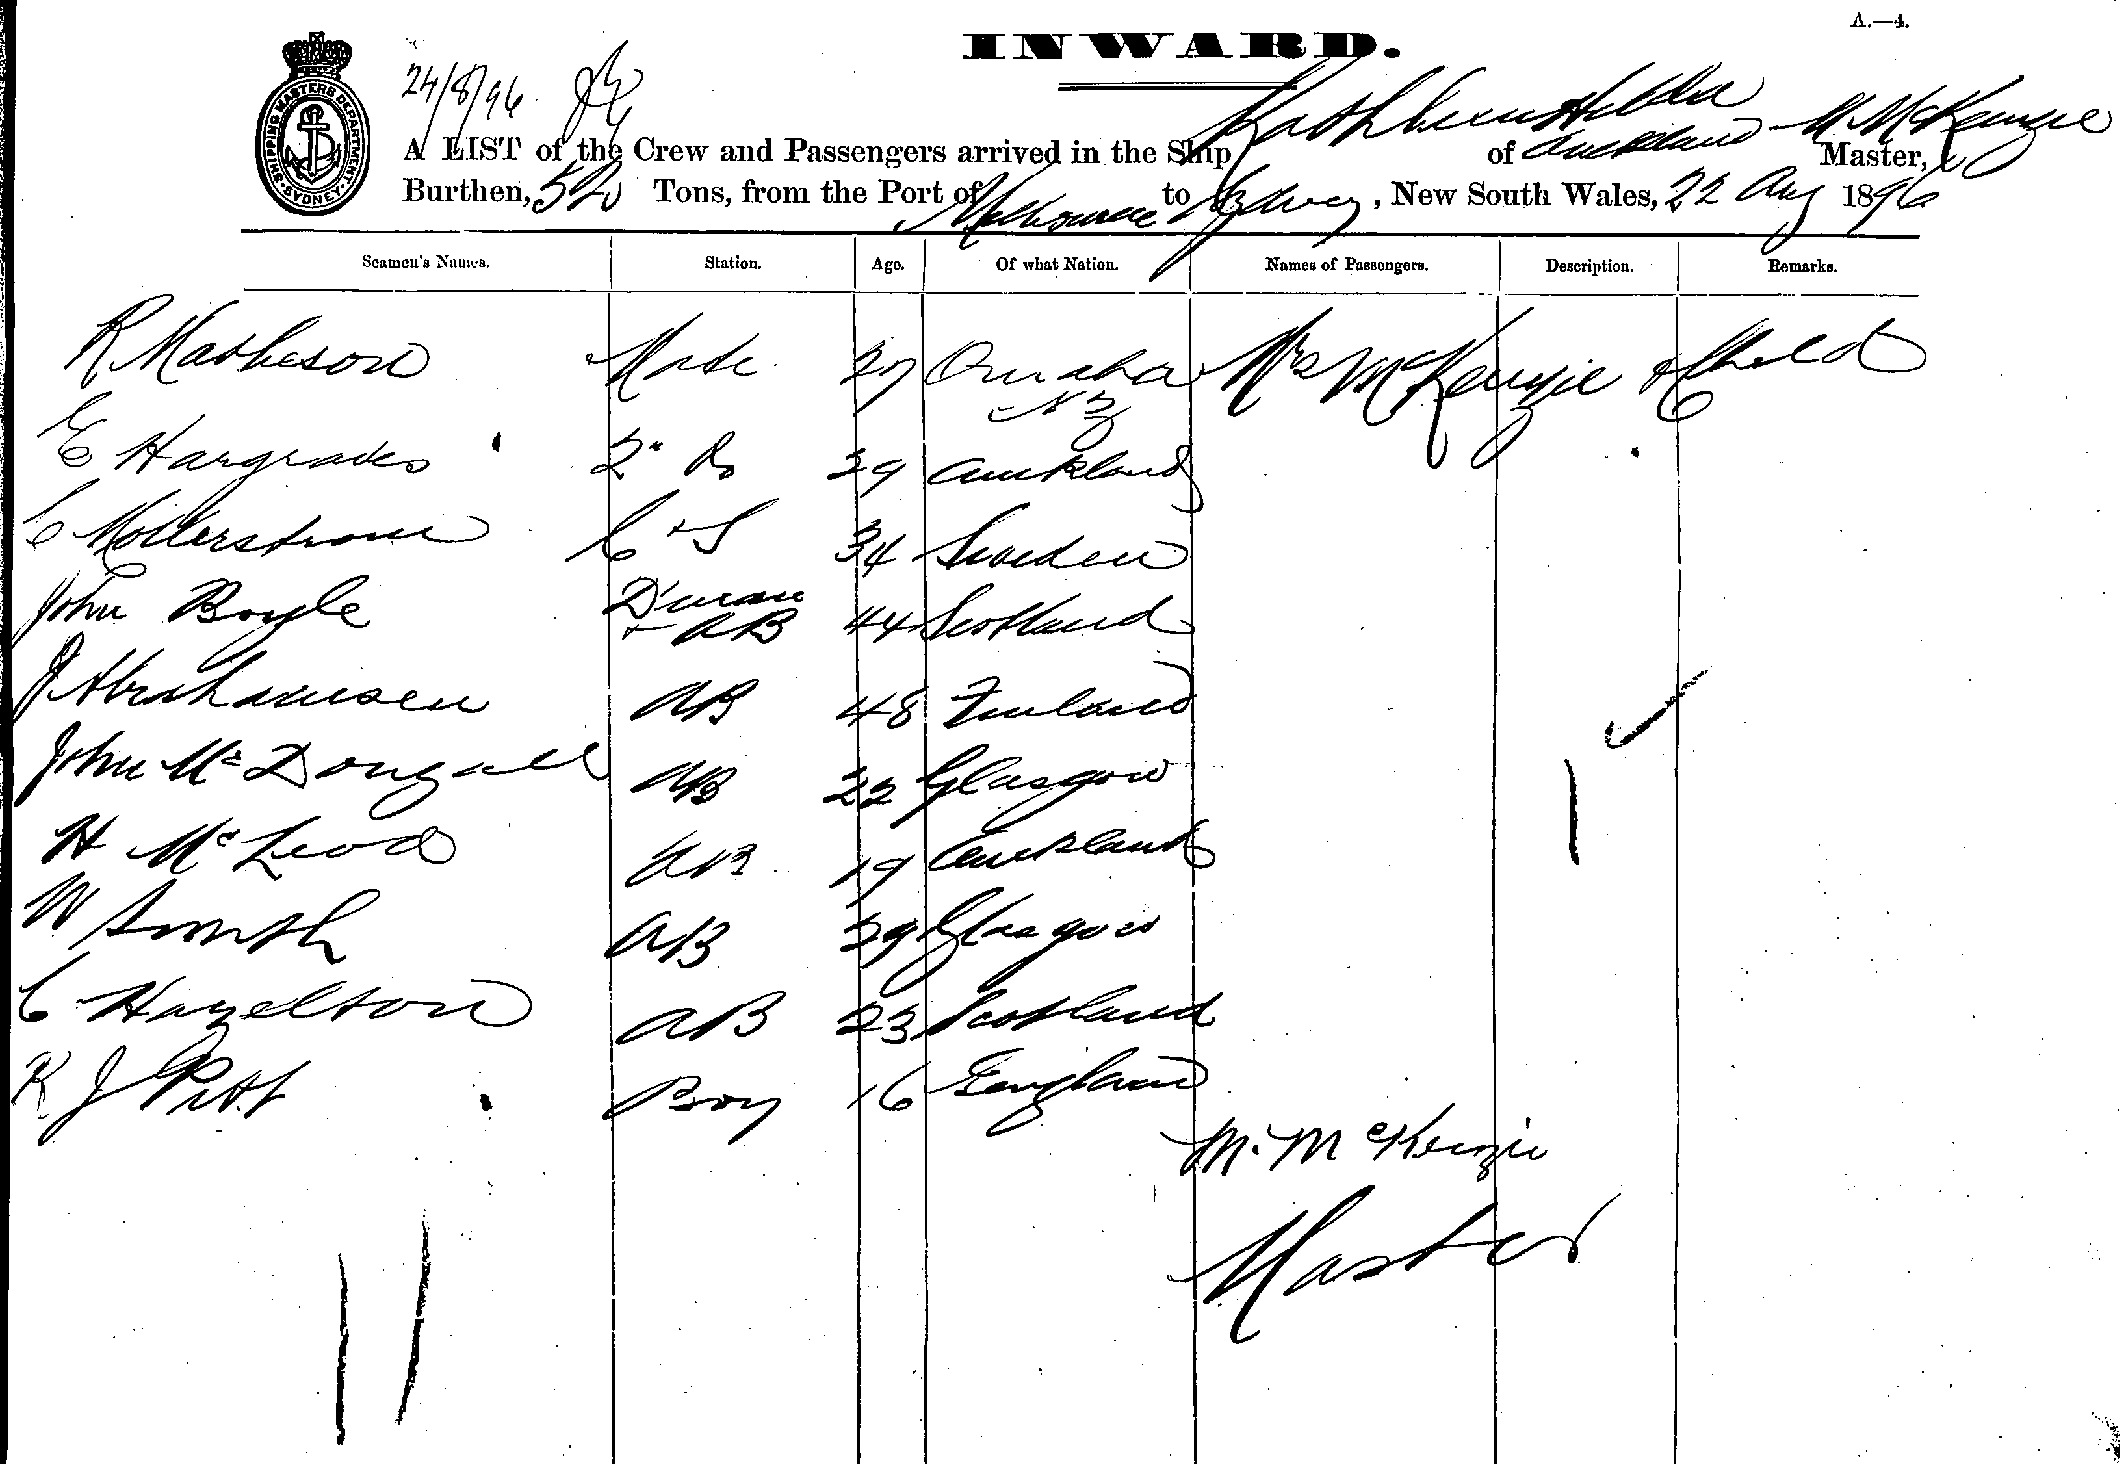 A.—4.
INWARD.
SHIPPING MASTERS DEPARTMENT
SYDNEY
24/8/96
A LIST of the Crew and Passengers arrived in the Ship Kathleen Hilda of Auckland M McKenzie Master,
Burthen, 520 Tons, from the Port of Melbourne to Sydney, New South Wales, 22 Aug 1896
Seamen's Names. Station. Age. Of what Nation. Names of Passengers. Description. Remarks.
R Matheson Mate 27 Omaha NZ Mrs McKenzie & Child
E Hargraves 2nd Do 29 Auckland
C Mollerstrom C & S 34 Sweden
John Boyle D'man & AB 44 Scotland
J Abrahamsen AB 48 Finland
John McDougall AB 22 Glasgow
H McLeod AB 19 Auckland
W Smith AB 29 Glasgow
C Hazelton AB 23 Scotland
R J Pitt Boy 16 England
M. McKenzie
Master
11
1